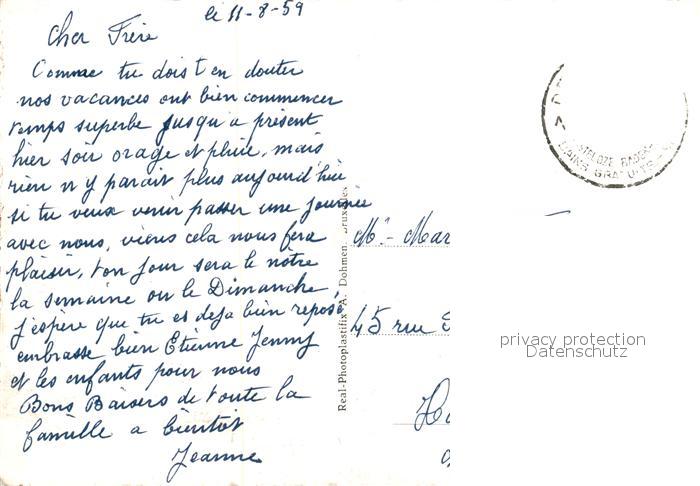 le 11-8-59
Cher Frère
Comme tu dois t en douter
nos vacances ont bien commencer
temps superbe jusqu'a présent
hier soir orage et pluie, mais
rien n y parait plus aujourd'hui
si tu veux venir passer une journée
avec nous, viens cela nous fera
plaisir, ton jour sera le nôtre
la semaine ou le Dimanche
j'espère que tu es deja bien reposé
embrasse bien Etienne Jenny
et les enfants pour nous
Bons Baisers de toute la
famille a bientôt
Jeanne
Real-Photoplastifix A. Dohmen, Bruxelles
Mr - Mar
45 rue
privacy protection
Datenschutz
BAINS GRATUITS